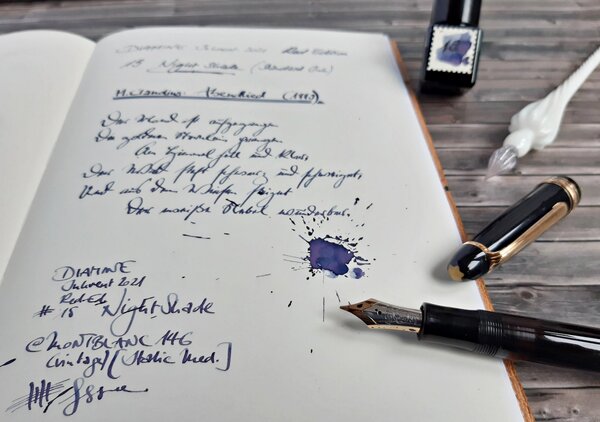 DIAMINE Inkvent 2021 Red Edition
15 Night Shade (Standard Ink)
M. Claudius: Abendlied
Der Mond ist aufgegangen
Die goldnen Sternlein prangen
Am Himmel hell und klar;
Der Wald steht schwarz und schweiget,
Und aus den Wiesen steiget
Der weiße Nebel wunderbar.
DIAMINE
Inkvent 2021
Red Ed.
# 15 Night Shade
@ MONTBLANC 146
(vintage) [Italic Med.]